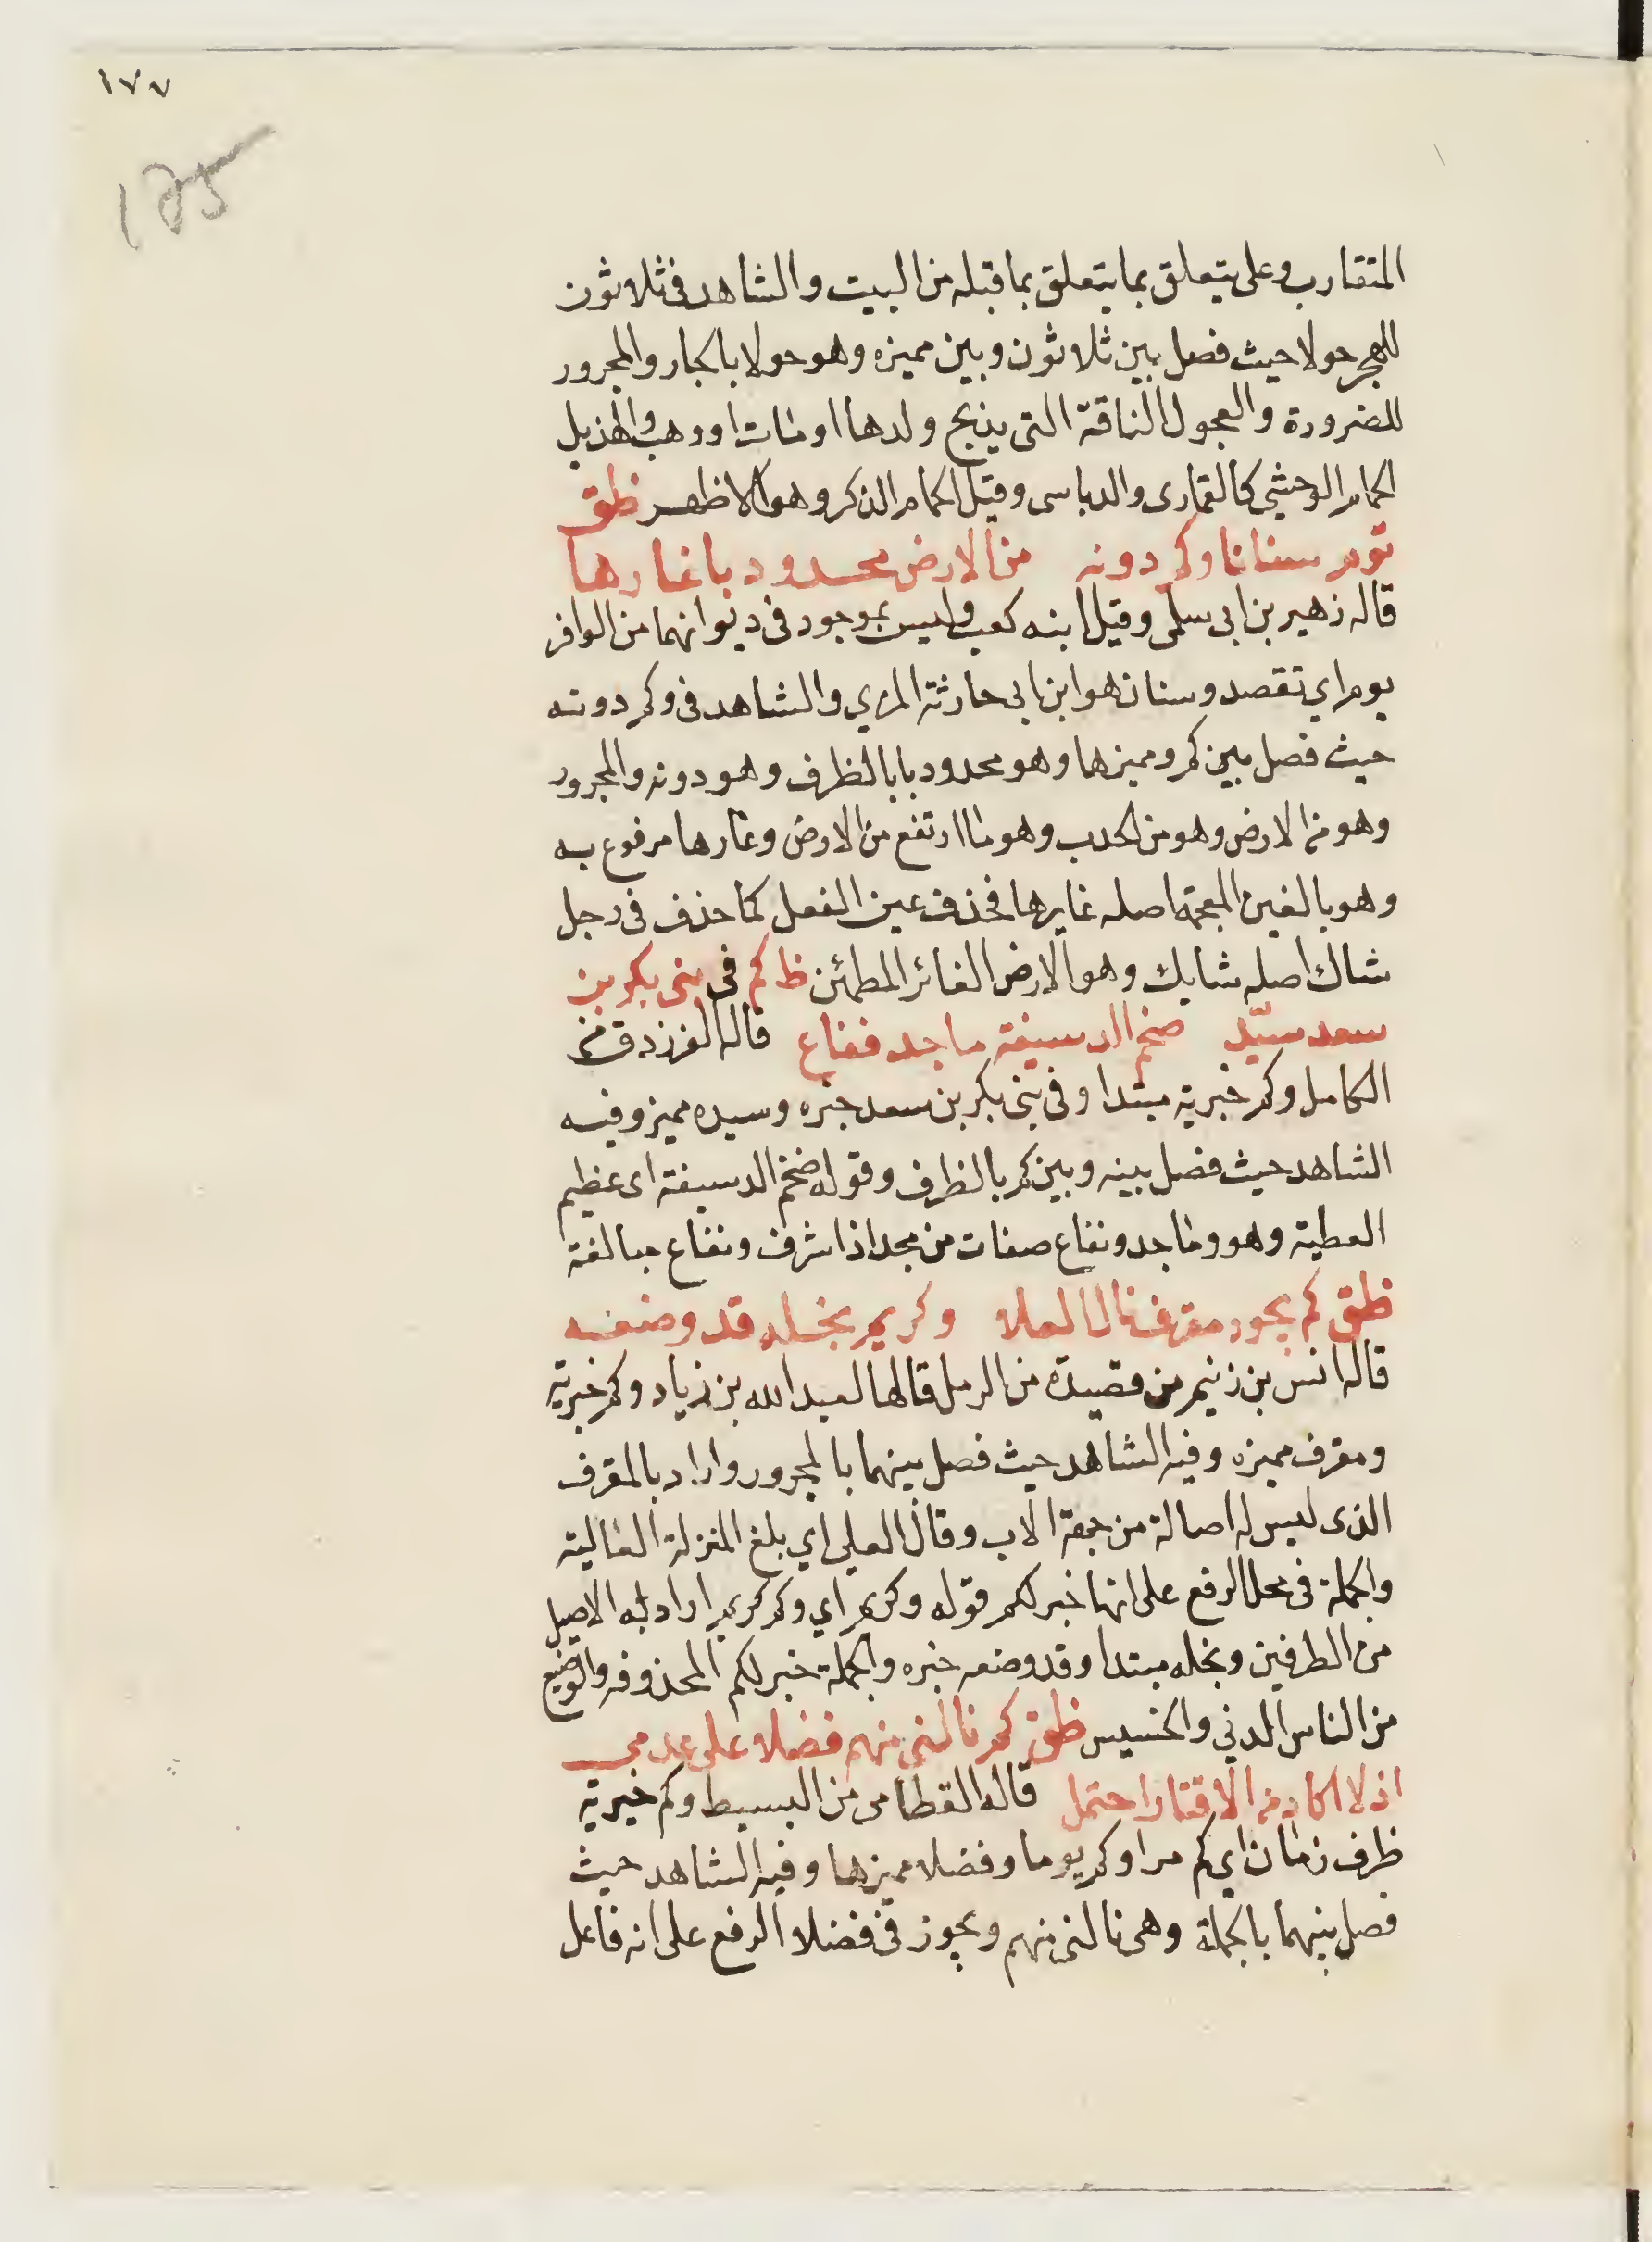 ١٧٧
١٢٥
المتقارب وعلى يتعلق بما يتعلق بما قبله من البيت والشاهد فى ثلاثون
للهجر حولا حيث فصل بين ثلاثون وبين مميزه وهو حولا بالجار والمجرور
للضرورة والعجول الناقة التى يذبح ولدها او مات او وهب والهذيل
الحمام الوحشي كالقمارى والدباسى وقيل الحمام الذكر وهو الاظهر ظق
تؤم سنانا وكم دونه من الارض محدودبا غارها
قاله زهير بن ابى سلمى وقيل ابنه كعب وليس بموجود فى ديوانهما من الوافر
يوم اي تقصد وسنان هو ابن ابى حارثة المري والشاهد فى وكم دونه
حيث فصل بين كم ومميزها وهو محدودبا بالظرف وهو دونه والمجرور
وهو من الارض وهو من الحدب وهو ما ارتفع من الارض وغارها مرفوع به
وهو بالغين المعجمة اصله غايرها فحذف عين الفعل كما حذف فى رجل
شاك اصله شايك وهو الارض الغائر المطمئن ظ كم فى بنى بكر بن
سعد سيّد ضخم الدسيعة ماجد نفاع قاله الفرزدق من
الكامل وكم خبرية مبتدا وفى بنى بكر بن سعد خبره وسيده مميز وفيه
الشاهد حيث فصل بينه وبين كم بالظرف وقوله ضخم الدسيعة اى عظيم
العطية وهو وماجد ونفاع صفات من مجد اذا شرف ونفاع مبالغة
ظق كم بجود مقرف نال العلا وكريم بخله قد وضعه
قاله انس بن زنيم من قصيدة من الرمل قالها لعبيد الله بن زياد وكم خبرية
ومقرف مميزه وفيه الشاهد حيث فصل بينهما بالمجرور واراد بالمقرف
الذى ليس له اصالة من جهة الاب وقال العلى اي بلغ المنزلة العالية
والجملة فى محل الرفع على انها خبر لكم قوله وكريم اي وكم كريم اراد به الاصيل
من الطرفين وبخله مبتدا وقد وضعه خبره والجملة خبر لكم المحذوفه والوضيع
من الناس الدني والخسيس ظق كم نالنى منهم فضلا على عدم
اذ لا اكاد من الاقتار احتمل قاله القطامى من البسيط وكم خبرية
ظرف زمان اي كم مرا وكم يوما وفضلا مميزها وفيه الشاهد حيث
فصل بينهما بالجملة وهى نالنى منهم ويجوز فى فضلا الرفع على انه فاعل